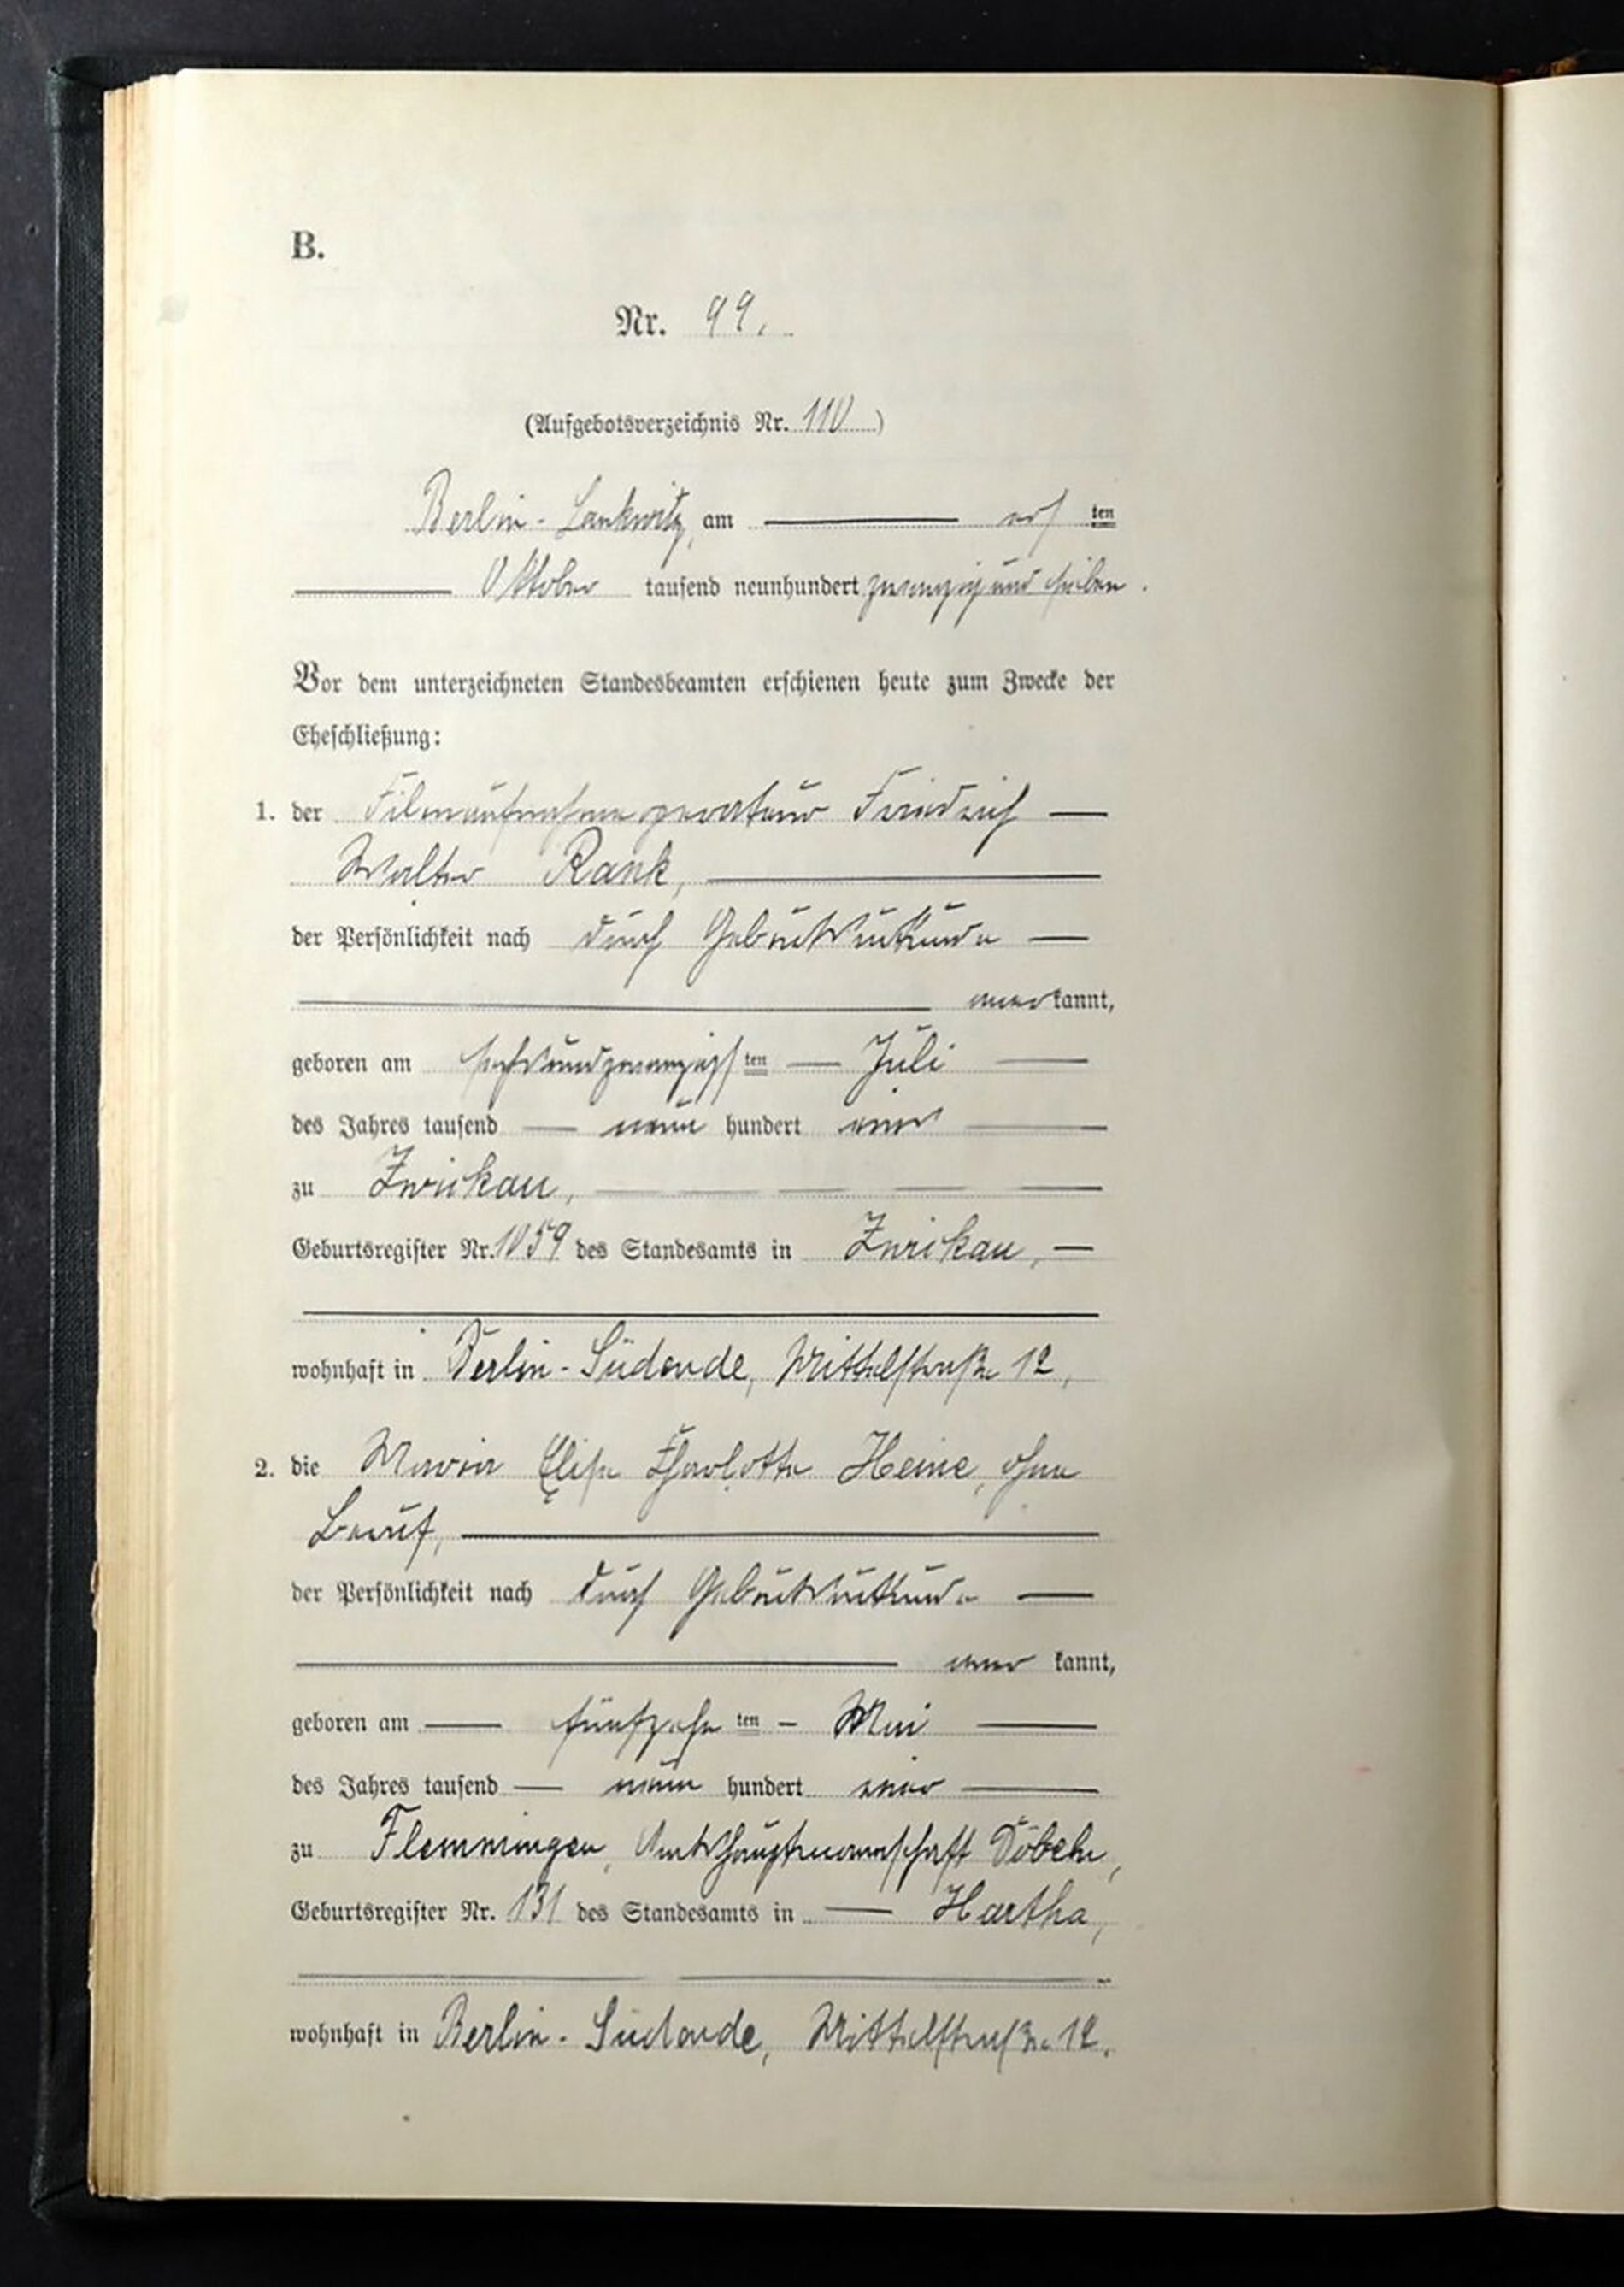 B.
Nr. 99.
(Aufgebotsverzeichnis Nr. 110)
Berlin-Lankwitz, am ers ten
Oktober tausend neunhundert zwanzig und sieben.
Vor dem unterzeichneten Standesbeamten erschienen heute zum Zwecke der
Eheschließung:
1. der Filmaufnahmeoperateur Friedrich
Walter Rank,
der Persönlichkeit nach durch Geburtsurkunde
anerkannt,
geboren am sechsundzwanzigsten Juli
des Jahres tausend neun hundert eins
zu Zwickau,
Geburtsregister Nr. 1059 des Standesamts in Zwickau,
wohnhaft in Berlin-Südende, Mittelstraße 12,
2. die Maria Elise Charlotte Heine, ohne
Beruf,
der Persönlichkeit nach durch Geburtsurkunde
aner kannt,
geboren am fünfzehn ten Mai
des Jahres tausend neun hundert vier
zu Flemmingen, Amtshauptmannschaft Döbeln,
Geburtsregister Nr. 131 des Standesamts in Hartha,
wohnhaft in Berlin-Südende, Mittelstraße 12.